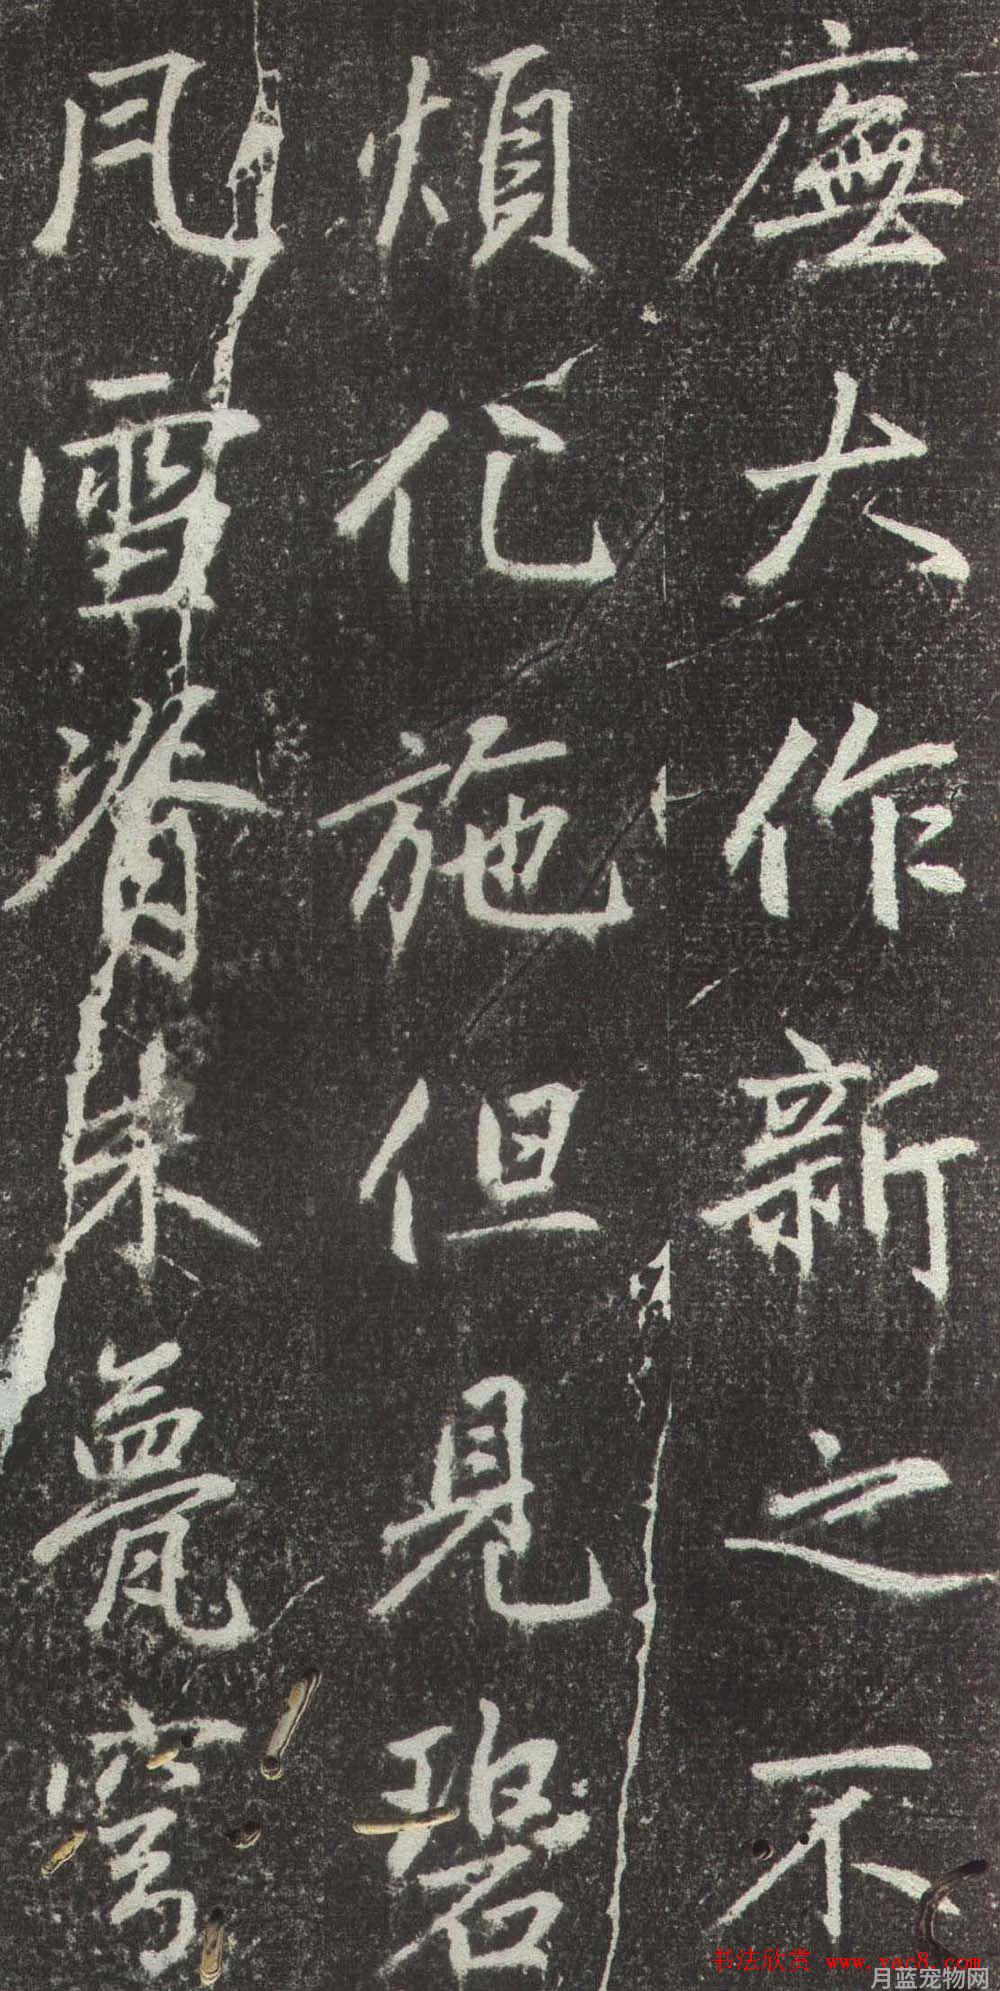 廡大作新之不
煩化施但見碧
瓦雪脊朱甍穹
书法欣赏 www.yac8.com
月蓝宠物网